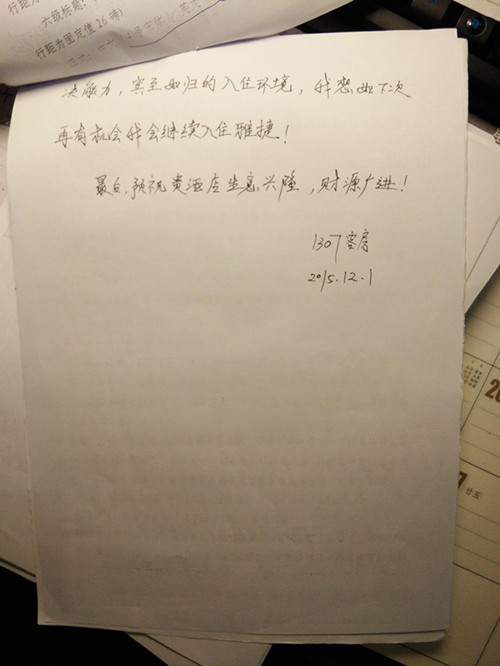 六级标题:
行距为固定值26磅)
决能力，宾至如归的入住环境，我想如下次
再有机会我会继续入住雅捷！
最后，预祝贵酒店生意兴隆，财源广进！
1307客房
2015.12.1
廿五